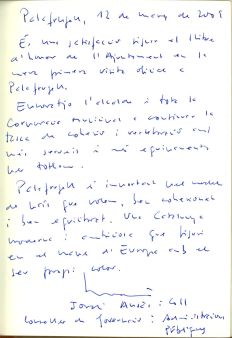 Palafrugell, 12 de març de 2008
És una satisfacció signar el llibre
d'honor de l'Ajuntament en la
meva primera visita oficial a
Palafrugell.
Encoratjo l'alcalde i tota la
Corporació Municipal a continuar la
tasca de cohesió i vertebració amb
més serveis i més equipaments
per tothom.
Palafrugell és important pel model
de país que volem, ben cohesionat
i ben equilibrat. Una Catalunya
moderna i ambiciosa que figuri
en el mapa d'Europa amb el
seu propi color.
Jordi Ausàs i Coll
Conseller de Governació i Administracions
Públiques